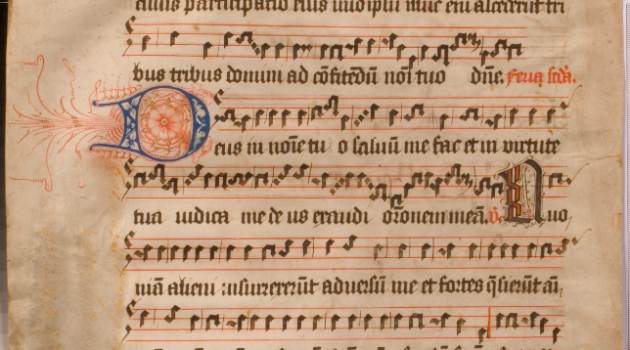 cuius participatio eius in idipsum illuc enī ascenderūt tri
bus tribus domini ad cōfitēdū noī tuo dn̄e. Feria scđa.
Deus in noīe tu o saluū me fac et in virtute
tua iudica me de us exaudi orōnem meā. v̄ Quo
niā alieni insurrexerūt adversū me et fortes q̄sierūt aī